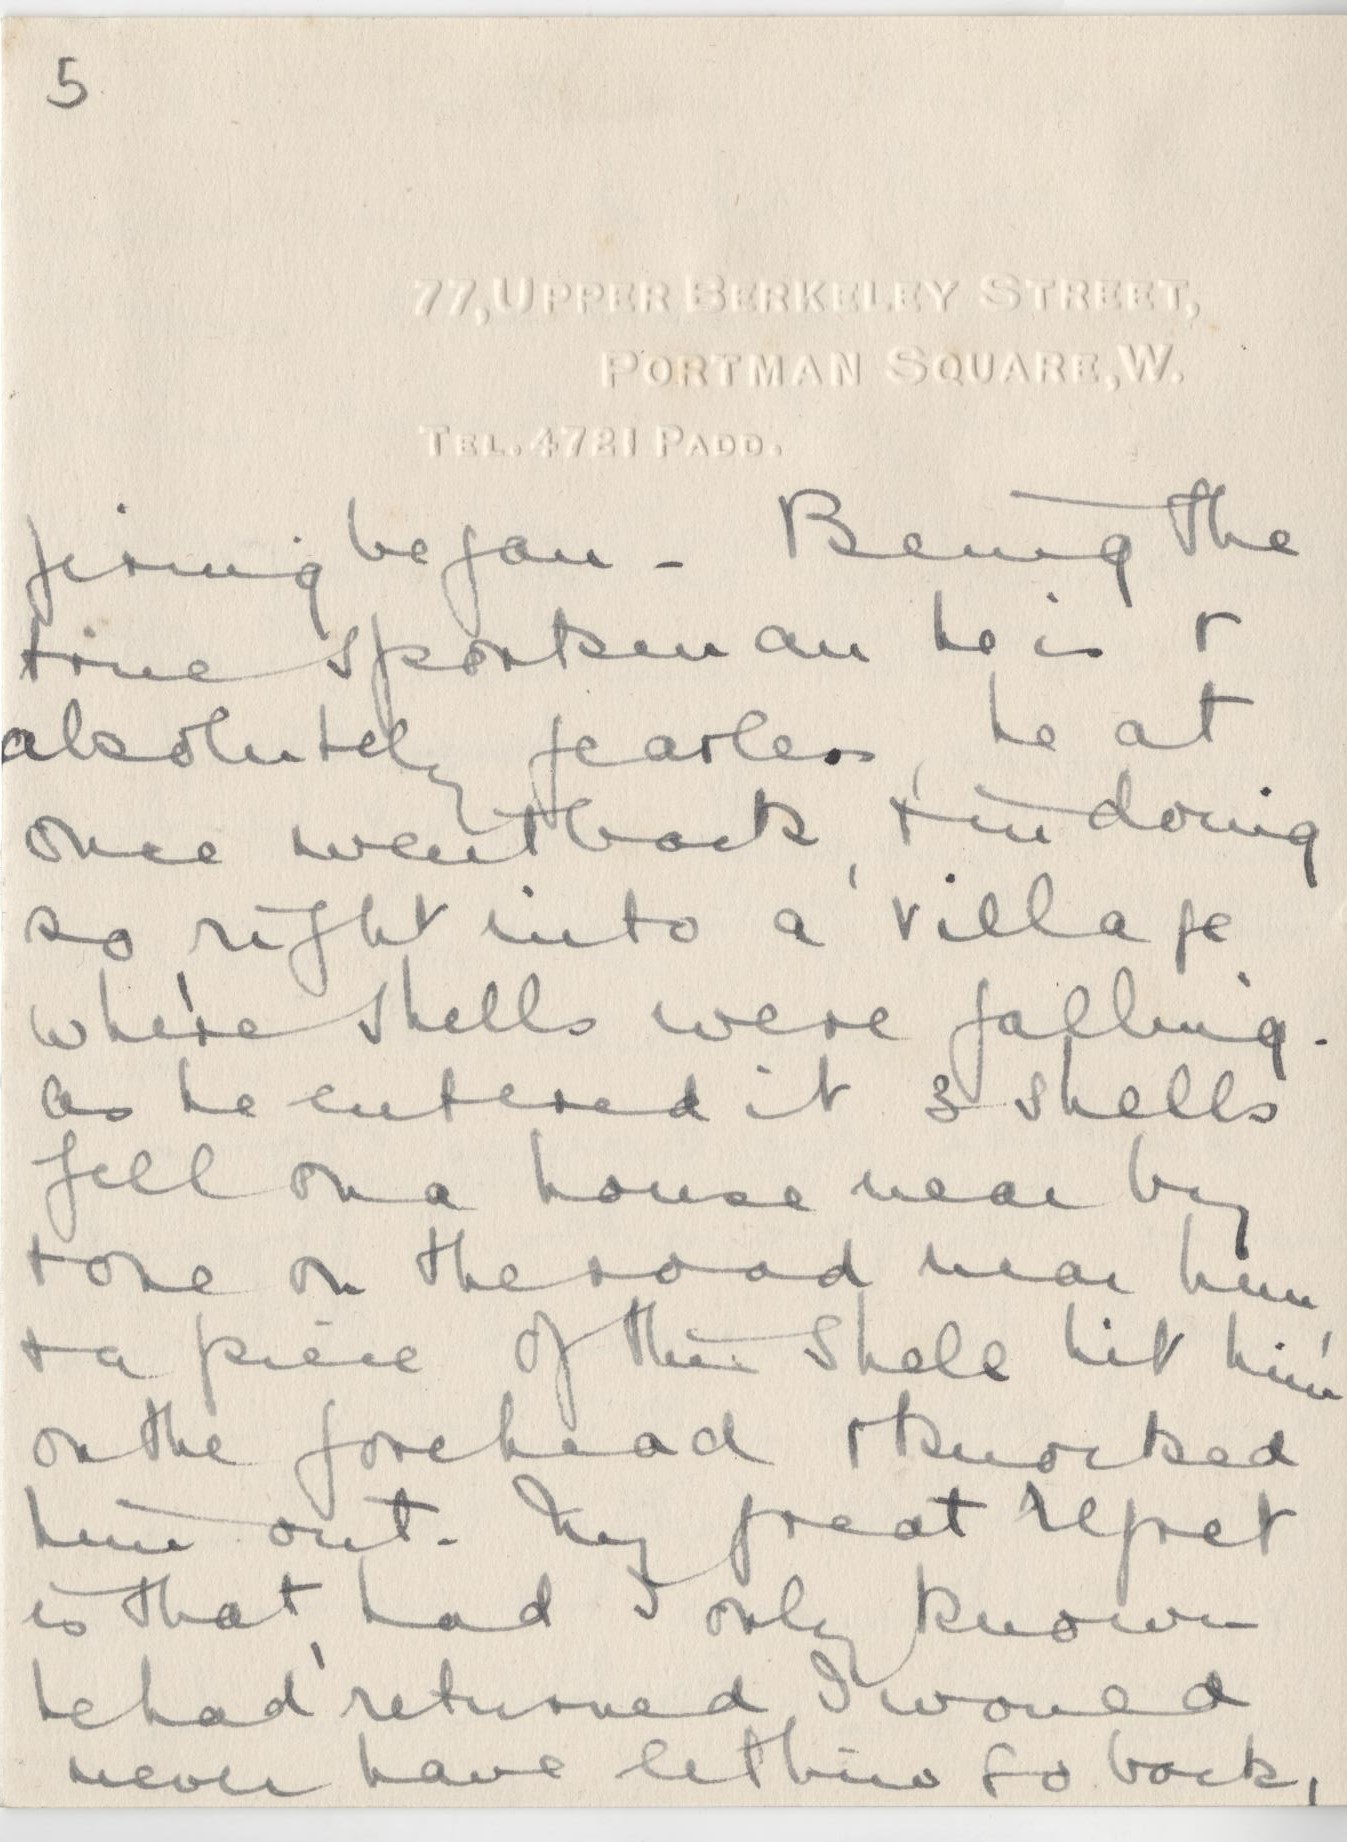 5
77, UPPER BERKELEY STREET,
PORTMAN SQUARE, W.
TEL. 4721 PADD.
firing began - Being the
true sportsman he is &
absolutely fearless, he at
once went back, & in doing
so right into a village
where shells were falling.
As he entered it 3 shells
fell on a house near by
& one on the road near him,
& a piece of this shell hit him
on the forehead & knocked
him out. My great regret
is that, had I only known
he had returned I would
never have let him go back,